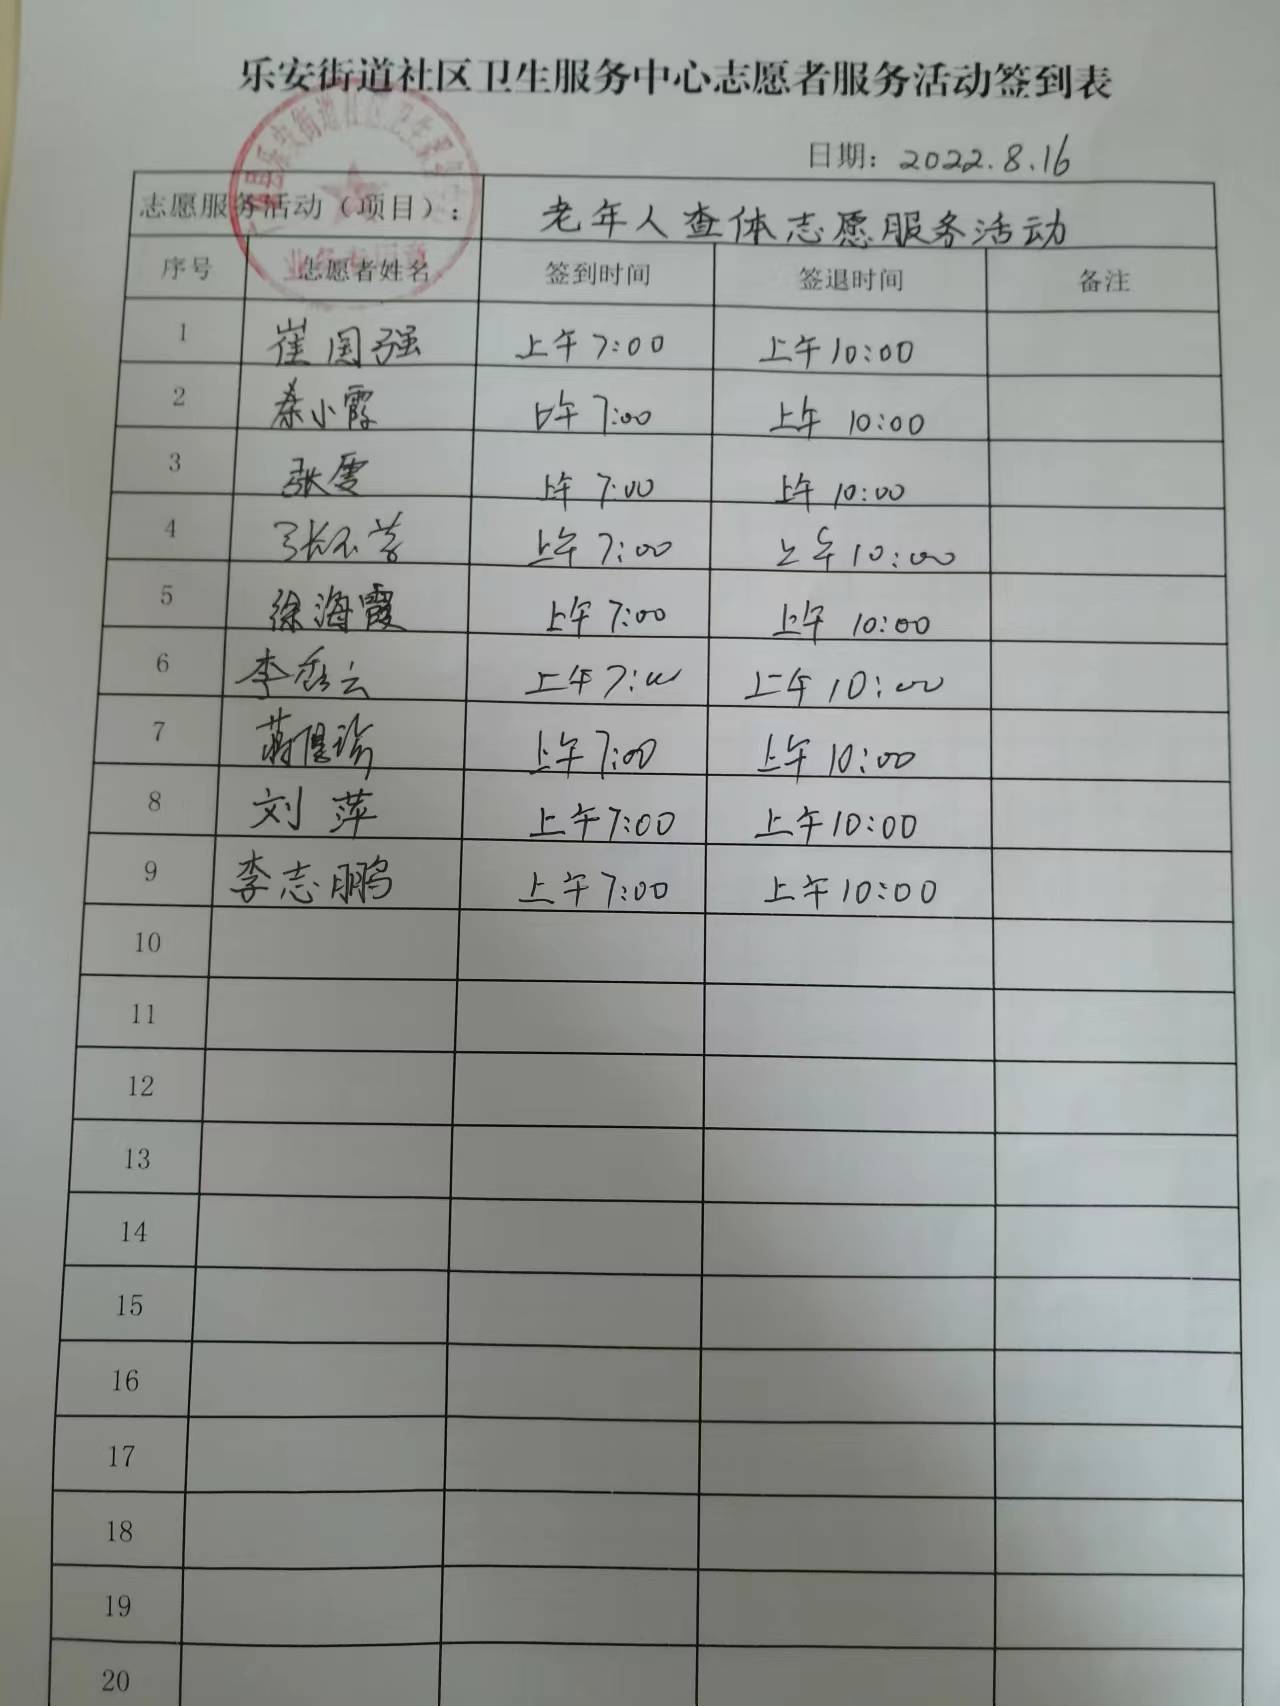 乐安街道社区卫生服务中心志愿者服务活动签到表
日期：2022.8.16
志愿服务活动（项目）： 老年人查体志愿服务活动
序号 志愿者姓名 签到时间 签退时间 备注
1 崔国强 上午7:00 上午10:00
2 秦小霞 上午7:00 上午10:00
3 张雯 上午7:00 上午10:00
4 上午7:00 上午10:00
5 徐海霞 上午7:00 上午10:00
6 李秀云 上午7:00 上午10:00
7 上午7:00 上午10:00
8 刘萍 上午7:00 上午10:00
9 李志鹏 上午7:00 上午10:00
10
11
12
13
14
15
16
17
18
19
20